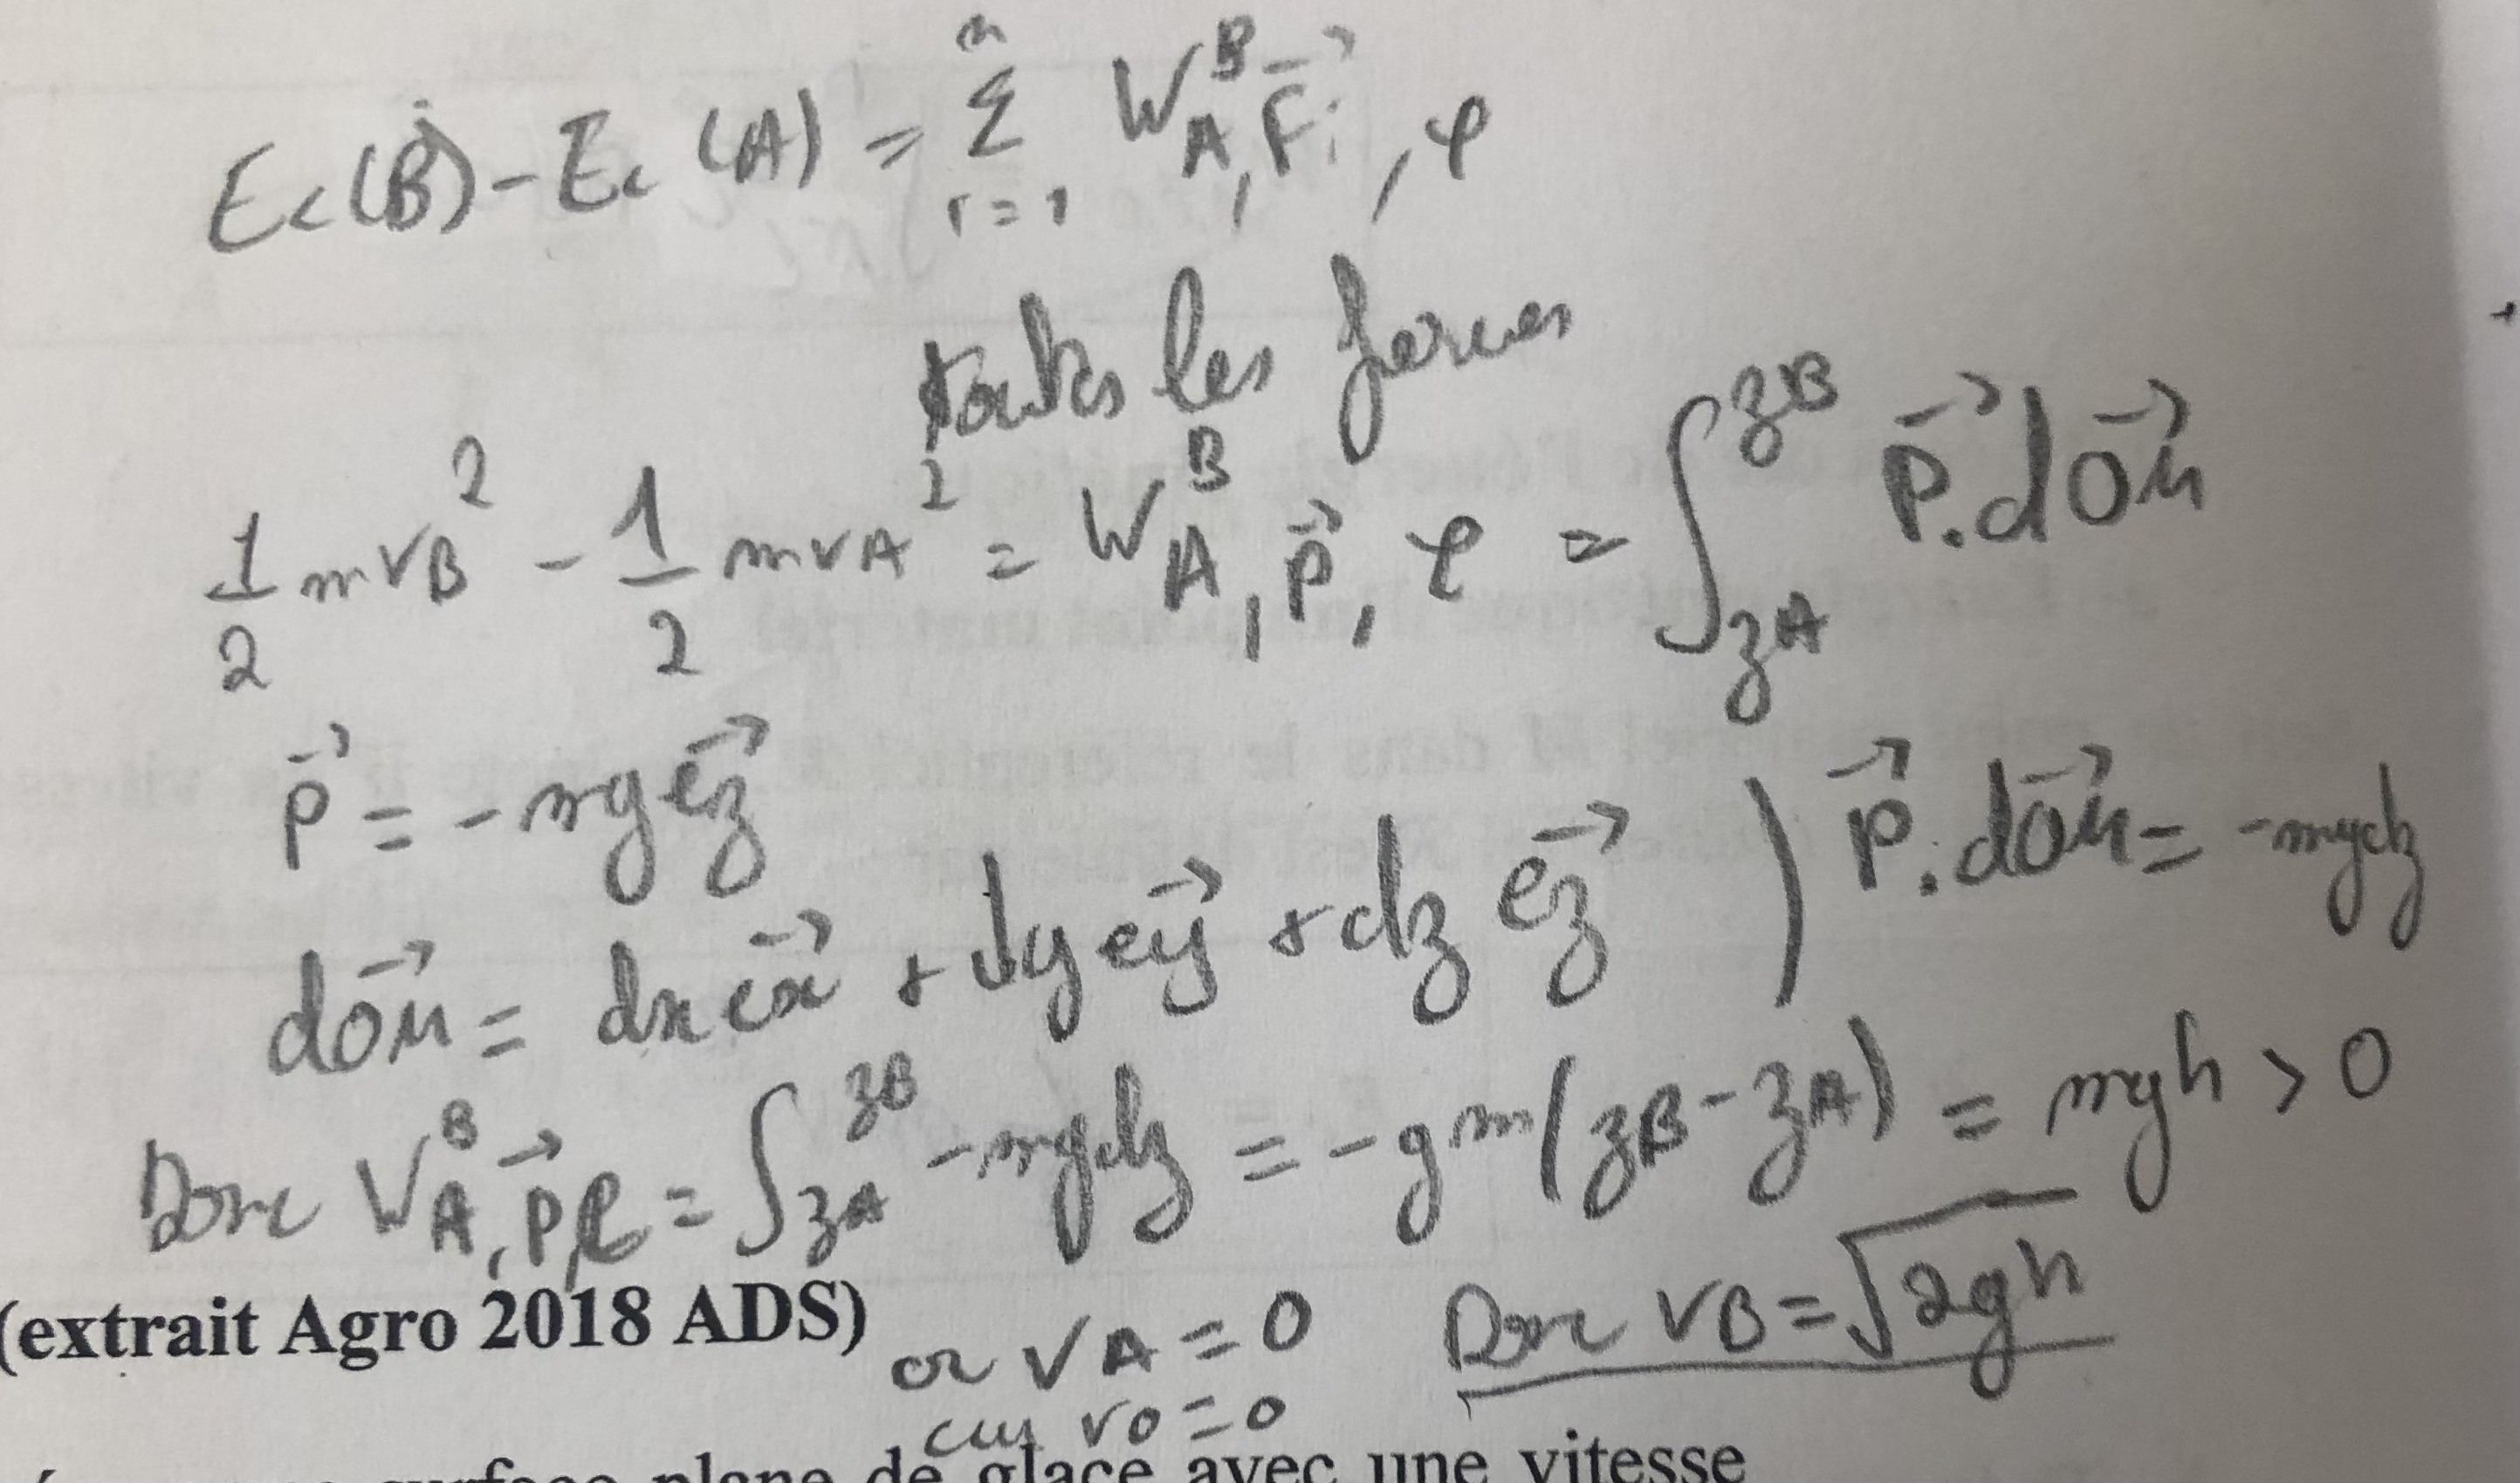 Ec(B) - Ec(A) = Σ_{i=1}^{n} W_{A, F⃗i, φ}^{B}
toutes les forces
1/2 mvB² - 1/2 mvA² = W_{A, P⃗, φ}^{B} = ∫_{zA}^{zB} P⃗.dOM⃗
P⃗ = -mg ez⃗
dOM⃗ = dx ex⃗ + dy ey⃗ + dz ez⃗ ) P⃗.dOM⃗ = -mgdz
Donc W_{A, P⃗, φ}^{B} = ∫_{zA}^{zB} -mgdz = -gm(zB - zA) = mgh > 0
(extrait Agro 2018 ADS)
or vA = 0 Donc vB = √2gh
car v0 = 0
surface plane de glace avec une vitesse